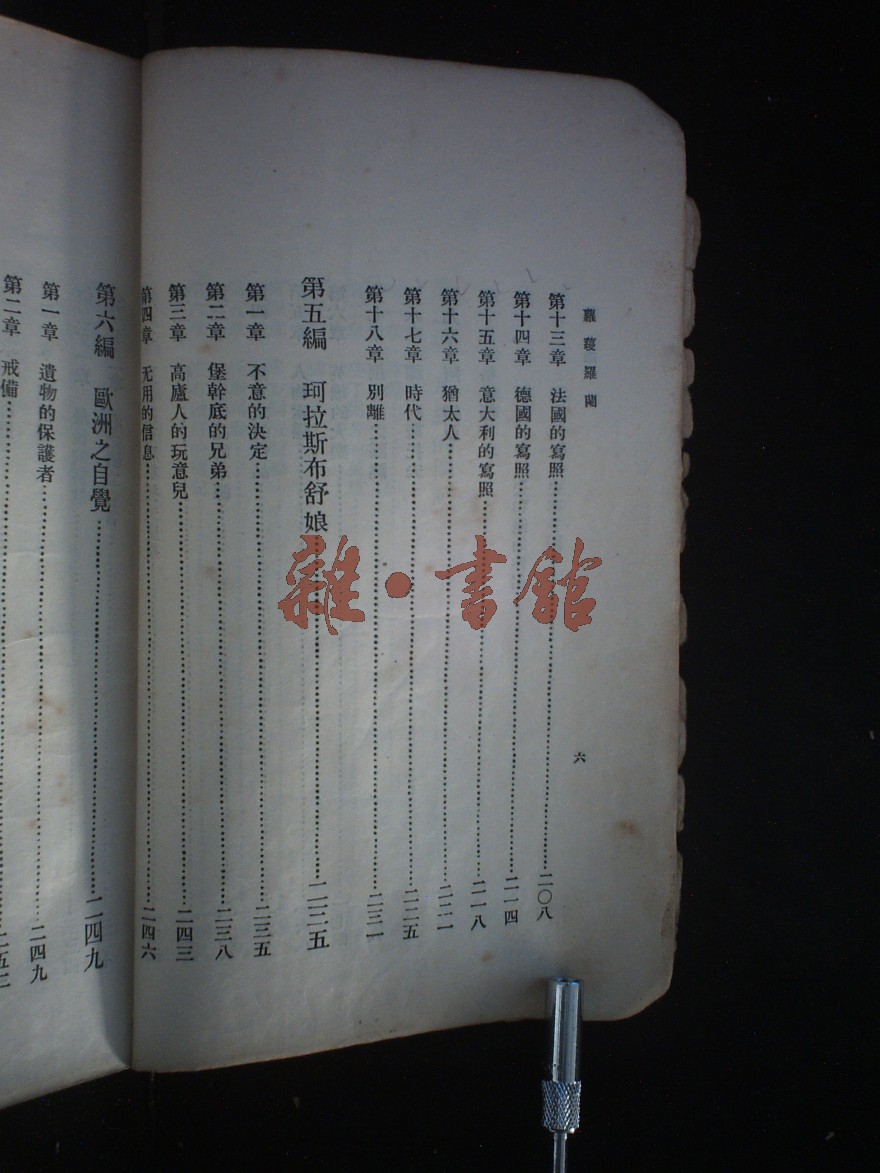 蘿蔓羅蘭
六
第十三章 法國的寫照……二〇八
第十四章 德國的寫照……二一四
第十五章 意大利的寫照……二一八
第十六章 猶太人……二二一
第十七章 時代……二二五
第十八章 別離……二三一
第五編 珂拉斯布舒娘……二三五
第一章 不意的決定……二三五
第二章 堡幹底的兄弟……二三八
第三章 高廬人的玩意兒……二四三
第四章 无用的信息……二四六
第六編 歐洲之自覺……二四九
第一章 遺物的保護者……二四九
第二章 戒備……二五二
雜·書館